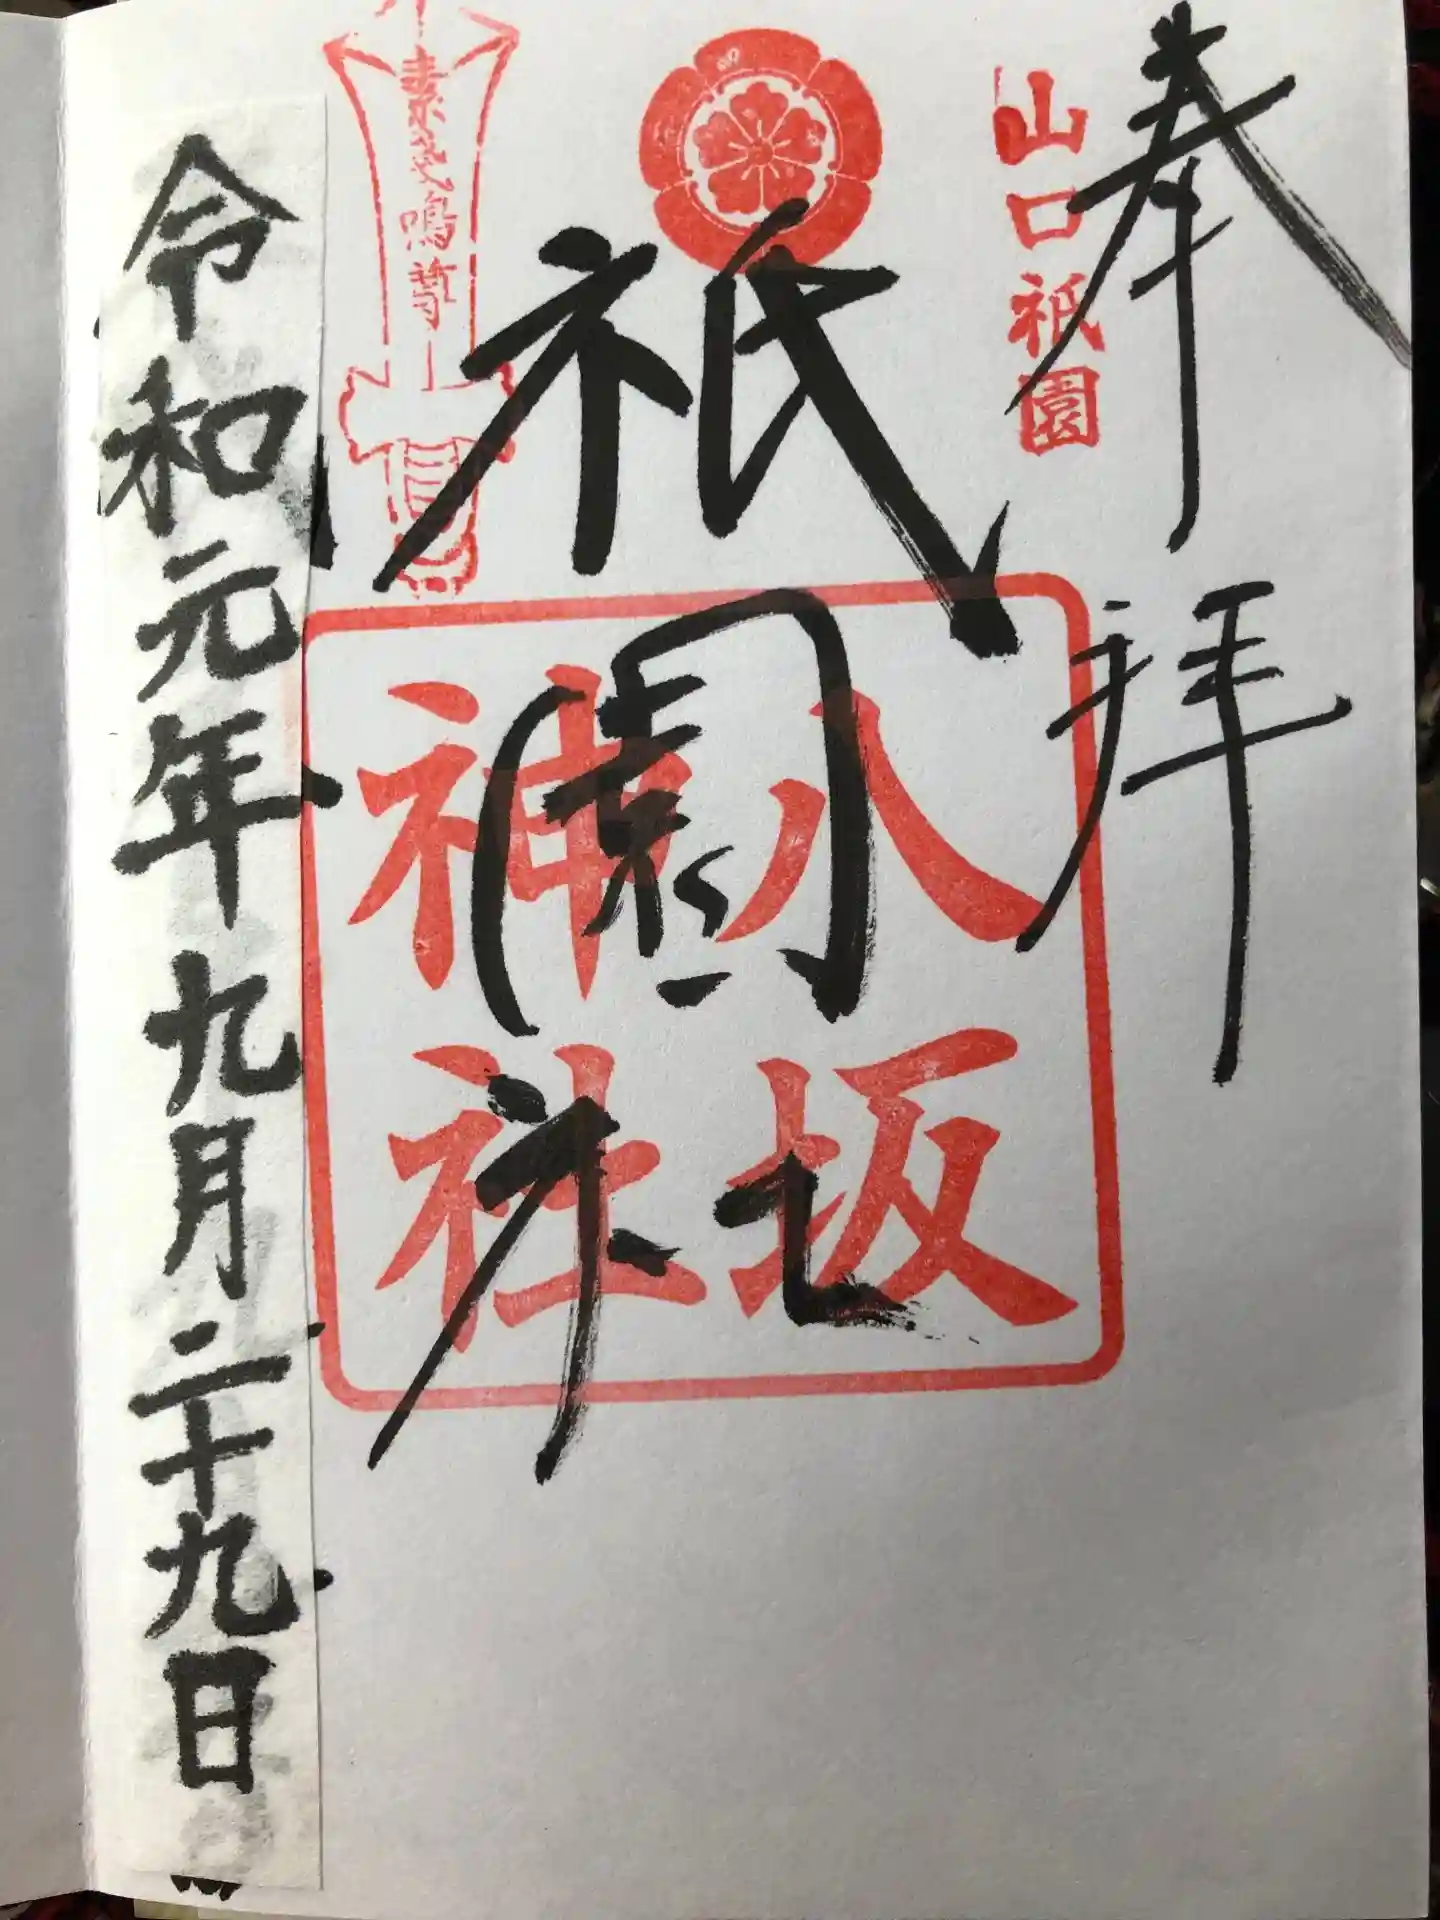 奉拝
山口祇園
祇園社
八坂
神社
素戔嗚尊
令和元年九月二十九日